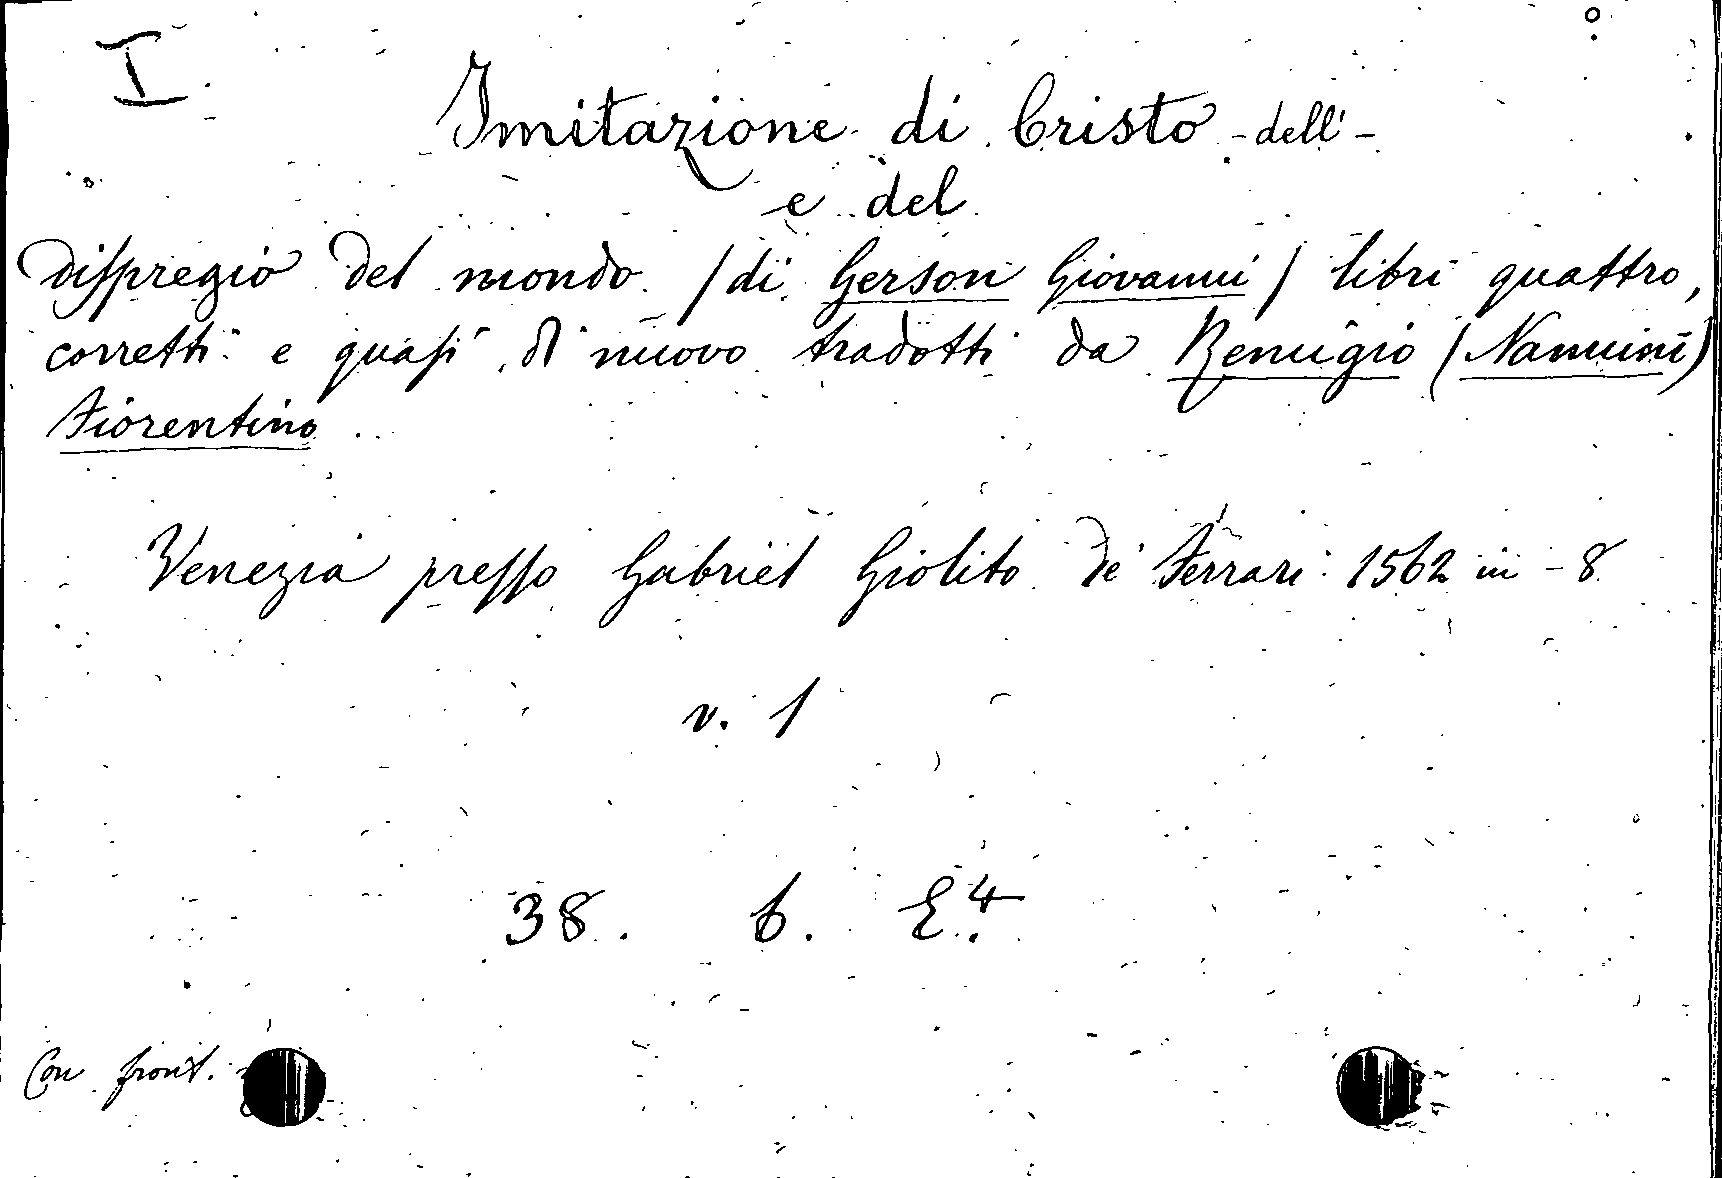 I
Imitazione di Cristo - dell' -
e del
dispregio del mondo /di Gerson Giovanni/ libri quattro,
corretti e quasi di nuovo tradotti da Remigio (Nannini)
Fiorentino
Venezia presso Gabriel Giolito de' Ferrari 1562 in - 8
v. 1
38. b. E.4
Con front.